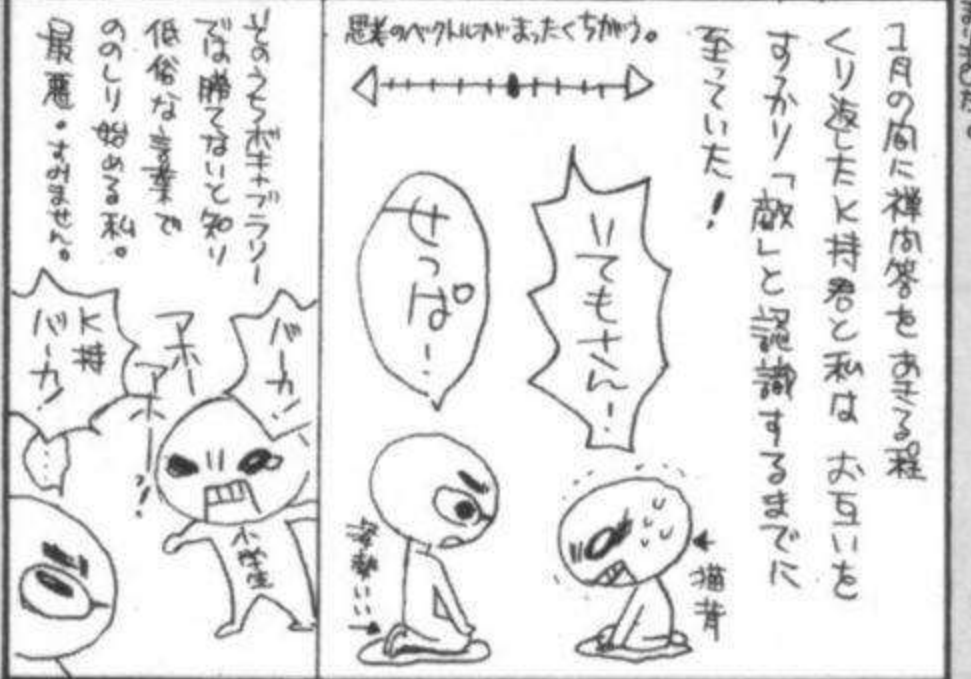 1月の間に禅問答をあきる程
くり返したK持君と私は お互いを
すっかり「敵」と認識するまでに
至っていた!
思考のベクトルがまったくちがう。
いてもさん!
せっぱ!
猫背
姿勢いい
そのうちボキャブラリー
では勝てないと知り
低俗な言葉で
ののしり始める私。
最悪。すみません。
バーカ!
アホー
アホー!
K持
バーカ!
小学生